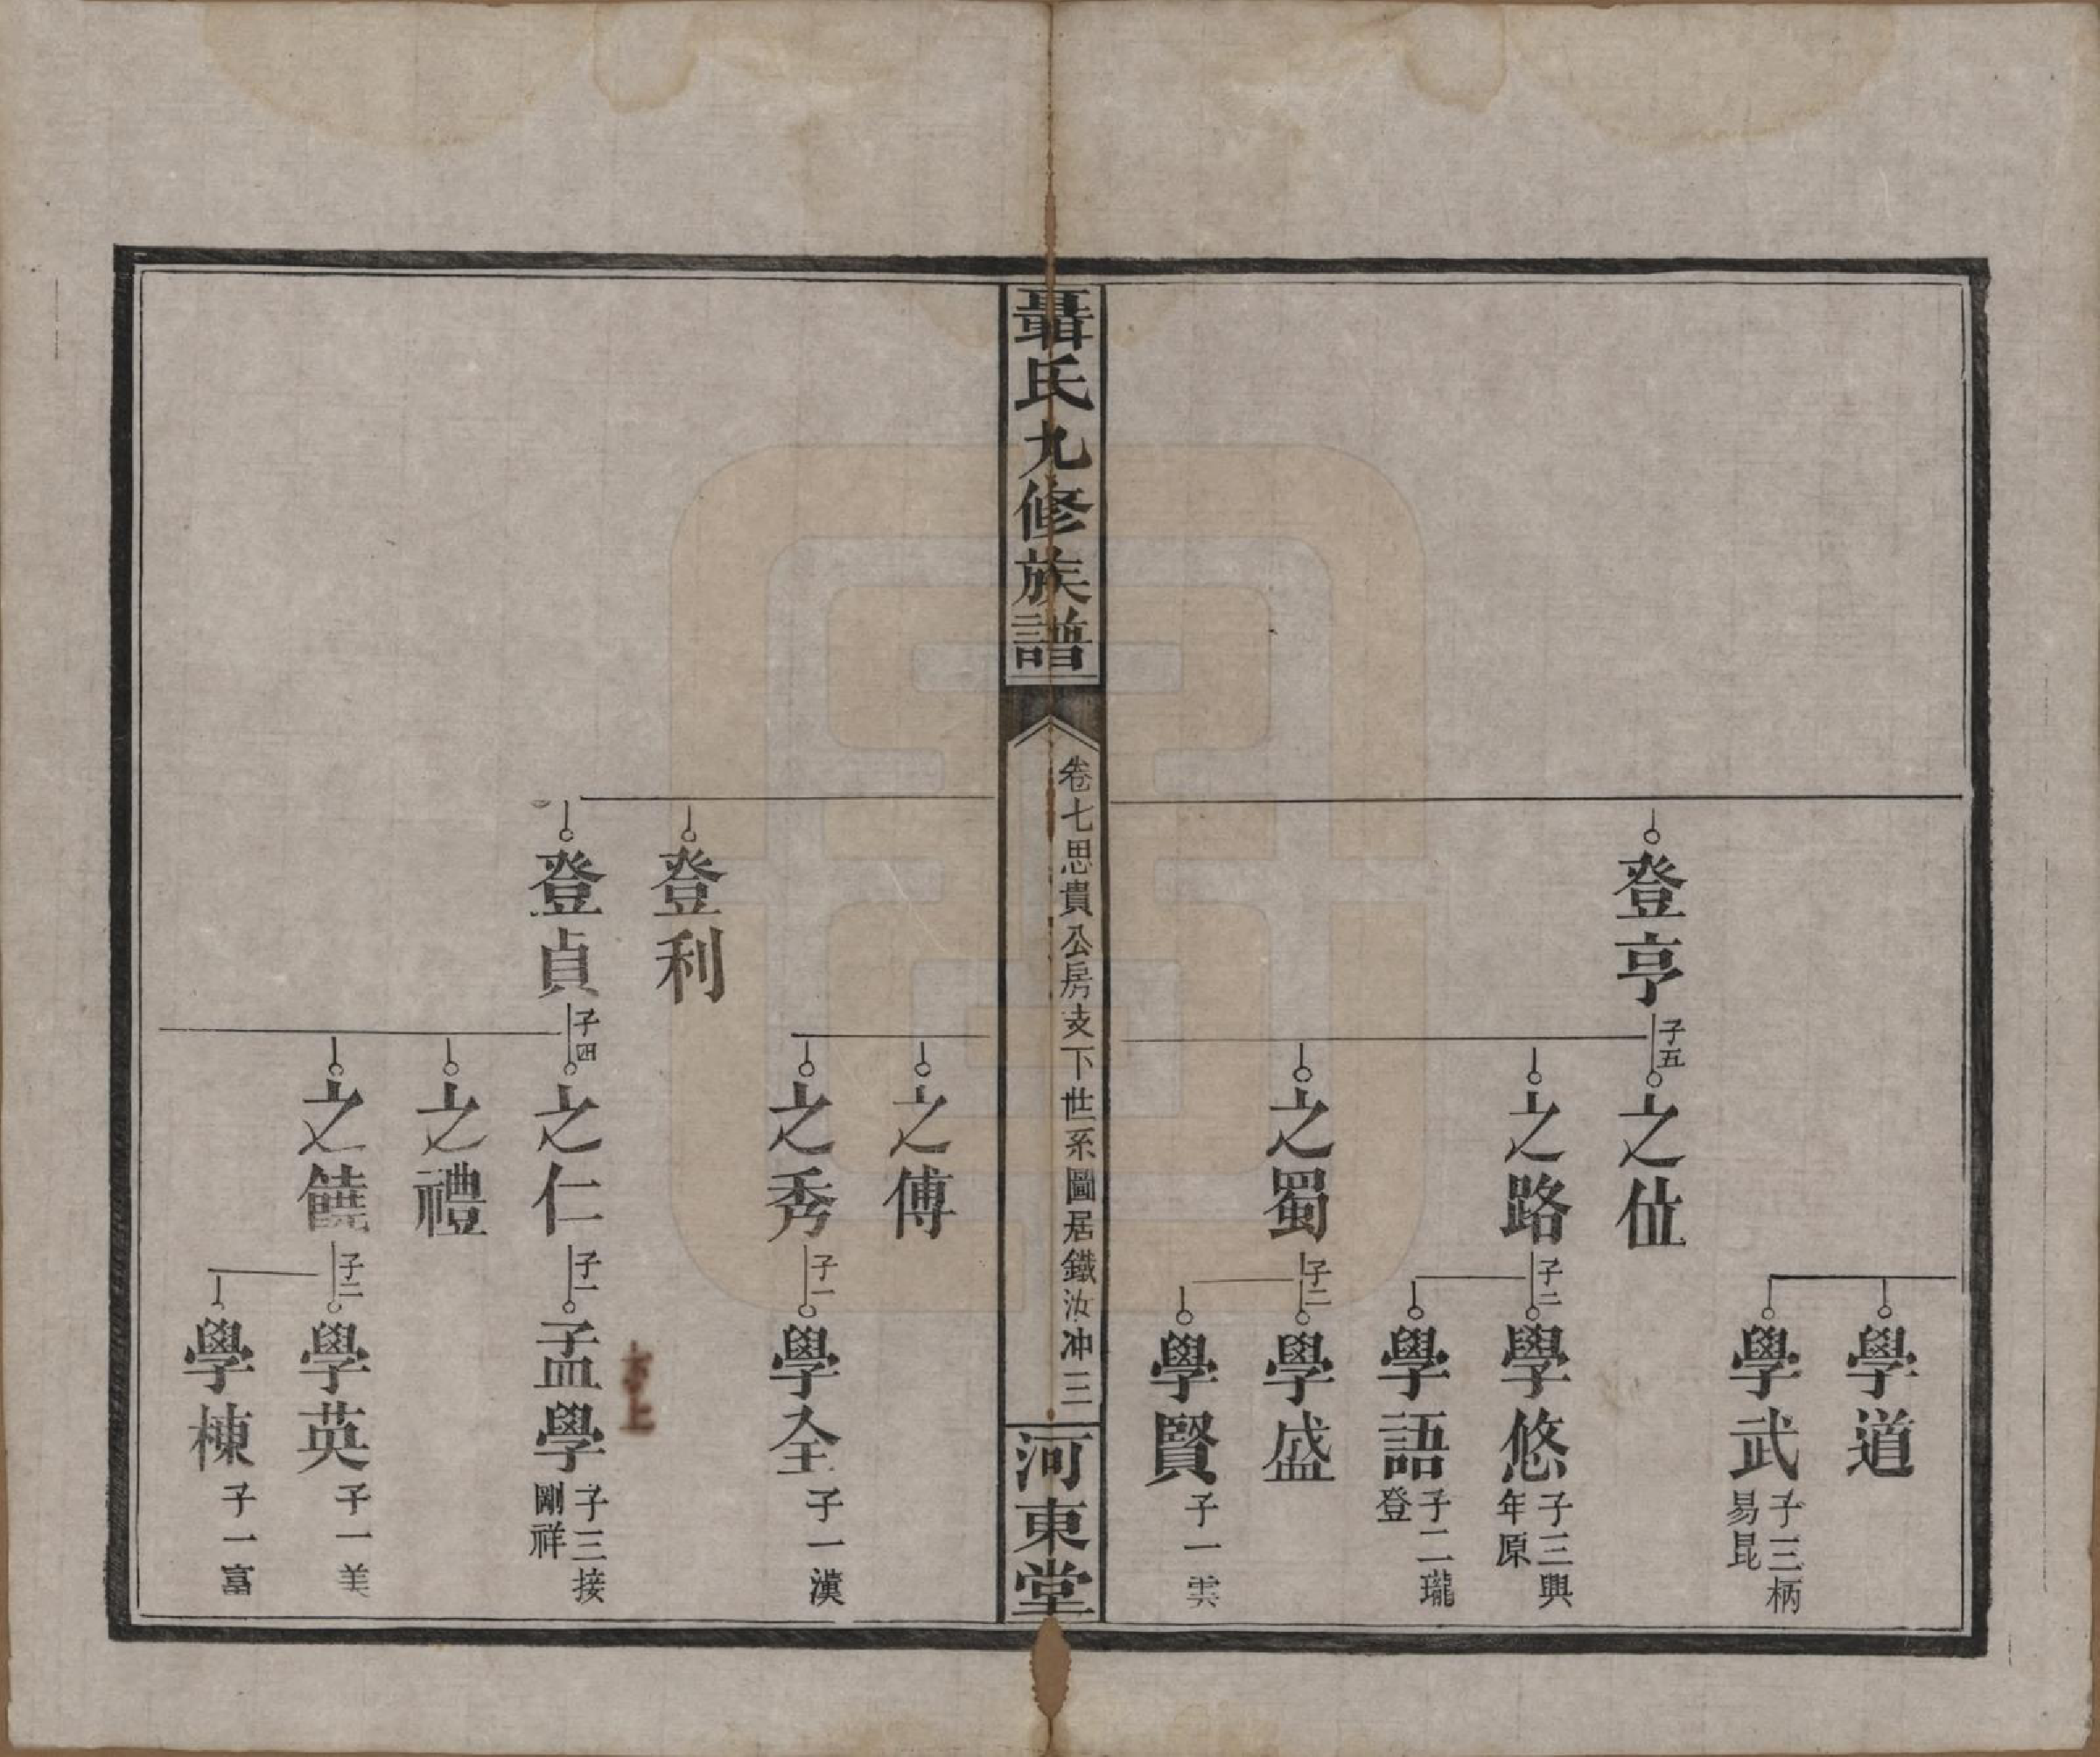 學道
學武 子三柄易昆
登亨 子五
之位
之路 子二
學悠 子三與年原
學語 子二瓏登
之蜀 子二
學盛
學賢 子一雲
聶氏九修族譜
卷七思貴公房支下世系圖居鐵汝冲 三
河東堂
之傅
之秀 子一
學全 子一漢
登利
登貞 子四
之仁 子一
孟學 子三接剛祥
之禮
之饒 子二
學英 子一美
學棟 子一富